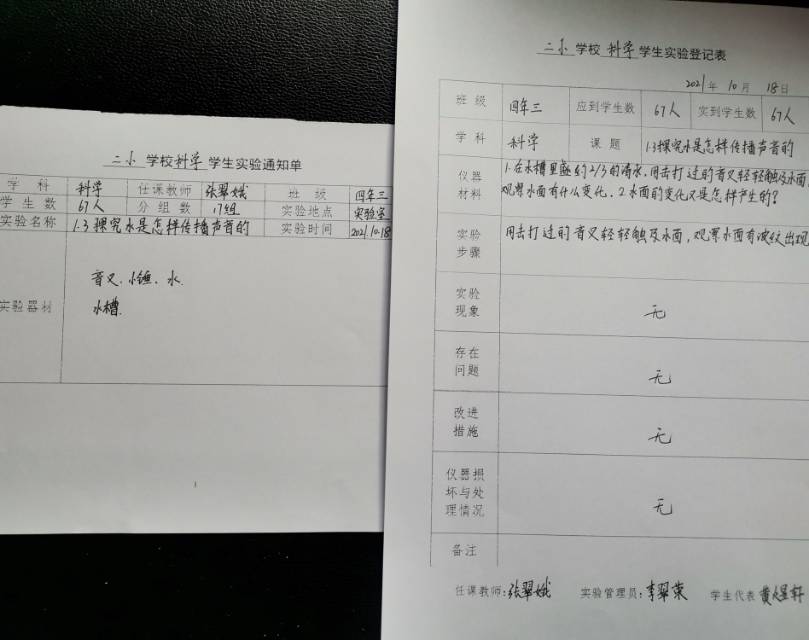 二小 学校 科学 学生实验通知单
学 科 科学 任课教师 张翠娥 班 级 四年三
学生数 67人 分组数 17组 实验地点 实验室
实验名称 1.3探究水是怎样传播声音的 实验时间 2021.10.18
实验器材
音叉、小锤、水、
水槽.
二小 学校 科学 学生实验登记表
2021年 10月 18日
班级 四年三 应到学生数 67人 实到学生数 67人
学科 科学 课题 1.3探究水是怎样传播声音的
仪器
材料
1.在水槽里盛约2/3的清水,用击打过的音叉轻轻触及水面
观察水面有什么变化.2水面的变化又是怎样产生的?
实验
步骤
用击打过的音叉轻轻触及水面,观察水面有波纹出现
实验
现象
无
存在
问题
无
改进
措施
无
仪器损
坏与处
理情况
无
备注
任课教师:张翠娥 实验管理员:李翠荣 学生代表 黄煜轩